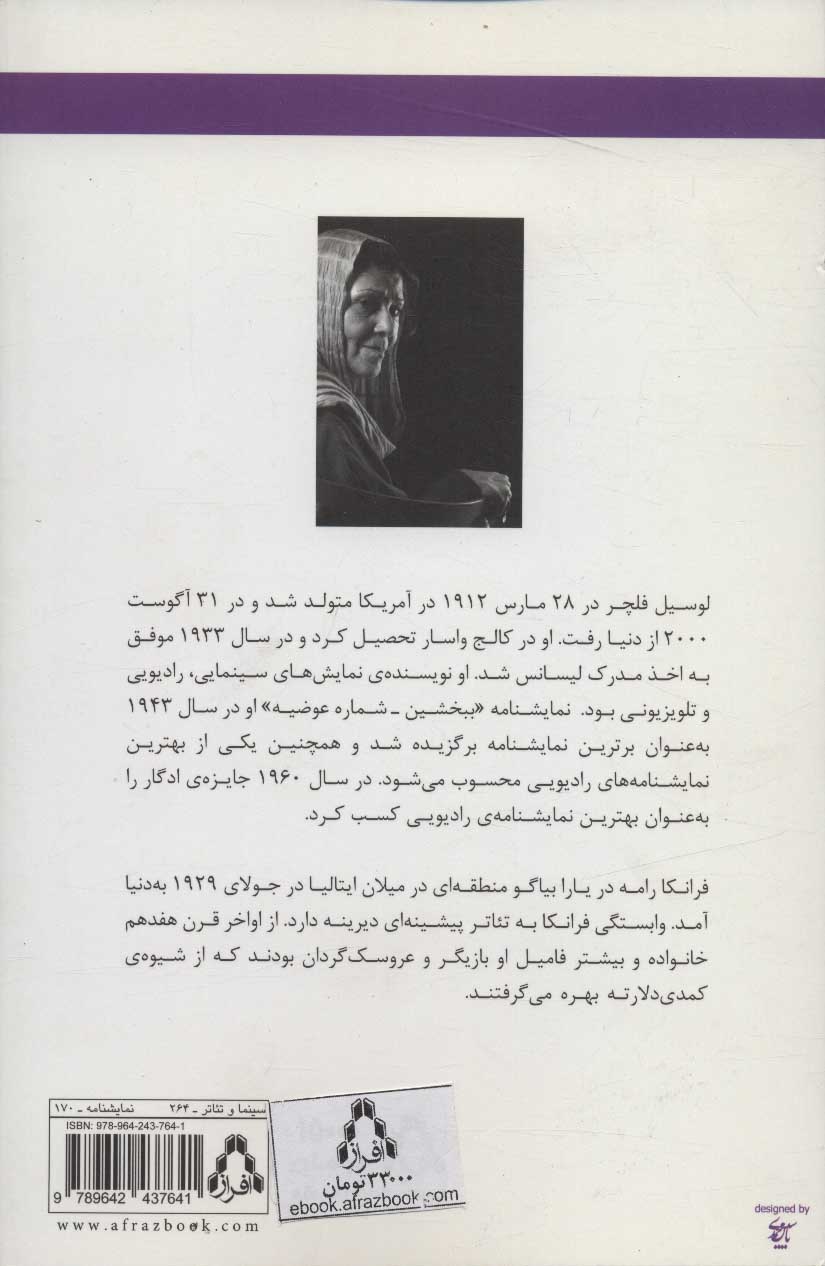 لوسیل فلچر در ۲۸ مارس ۱۹۱۲ در آمریکا متولد شد و در ۳۱ آگوست
۲۰۰۰ از دنیا رفت. او در کالج واسار تحصیل کرد و در سال ۱۹۳۳ موفق
به اخذ مدرک لیسانس شد. او نویسنده‌ی نمایش‌های سینمایی، رادیویی
و تلویزیونی بود. نمایشنامه «ببخشین ـ شماره عوضیه» او در سال ۱۹۴۳
به‌عنوان برترین نمایشنامه برگزیده شد و همچنین یکی از بهترین
نمایشنامه‌های رادیویی محسوب می‌شود. در سال ۱۹۶۰ جایزه‌ی ادگار را
به‌عنوان بهترین نمایشنامه‌ی رادیویی کسب کرد.
فرانکا رامه در پارا بیاگو منطقه‌ای در میلان ایتالیا در جولای ۱۹۲۹ به‌دنیا
آمد. وابستگی فرانکا به تئاتر پیشینه‌ای دیرینه دارد. از اواخر قرن هفدهم
خانواده و بیشتر فامیل او بازیگر و عروسک‌گردان بودند که از شیوه‌ی
کمدی‌دلارته بهره می‌گرفتند.
سینما و تئاتر ـ ۲۶۴ نمایشنامه ـ ۱۷۰
ISBN: 978-964-243-764-1
افراز
9 789642 437641
www.afrazbook.com
افراز
۳۳۰۰۰ تومان
ebook.afrazbook.com
designed by